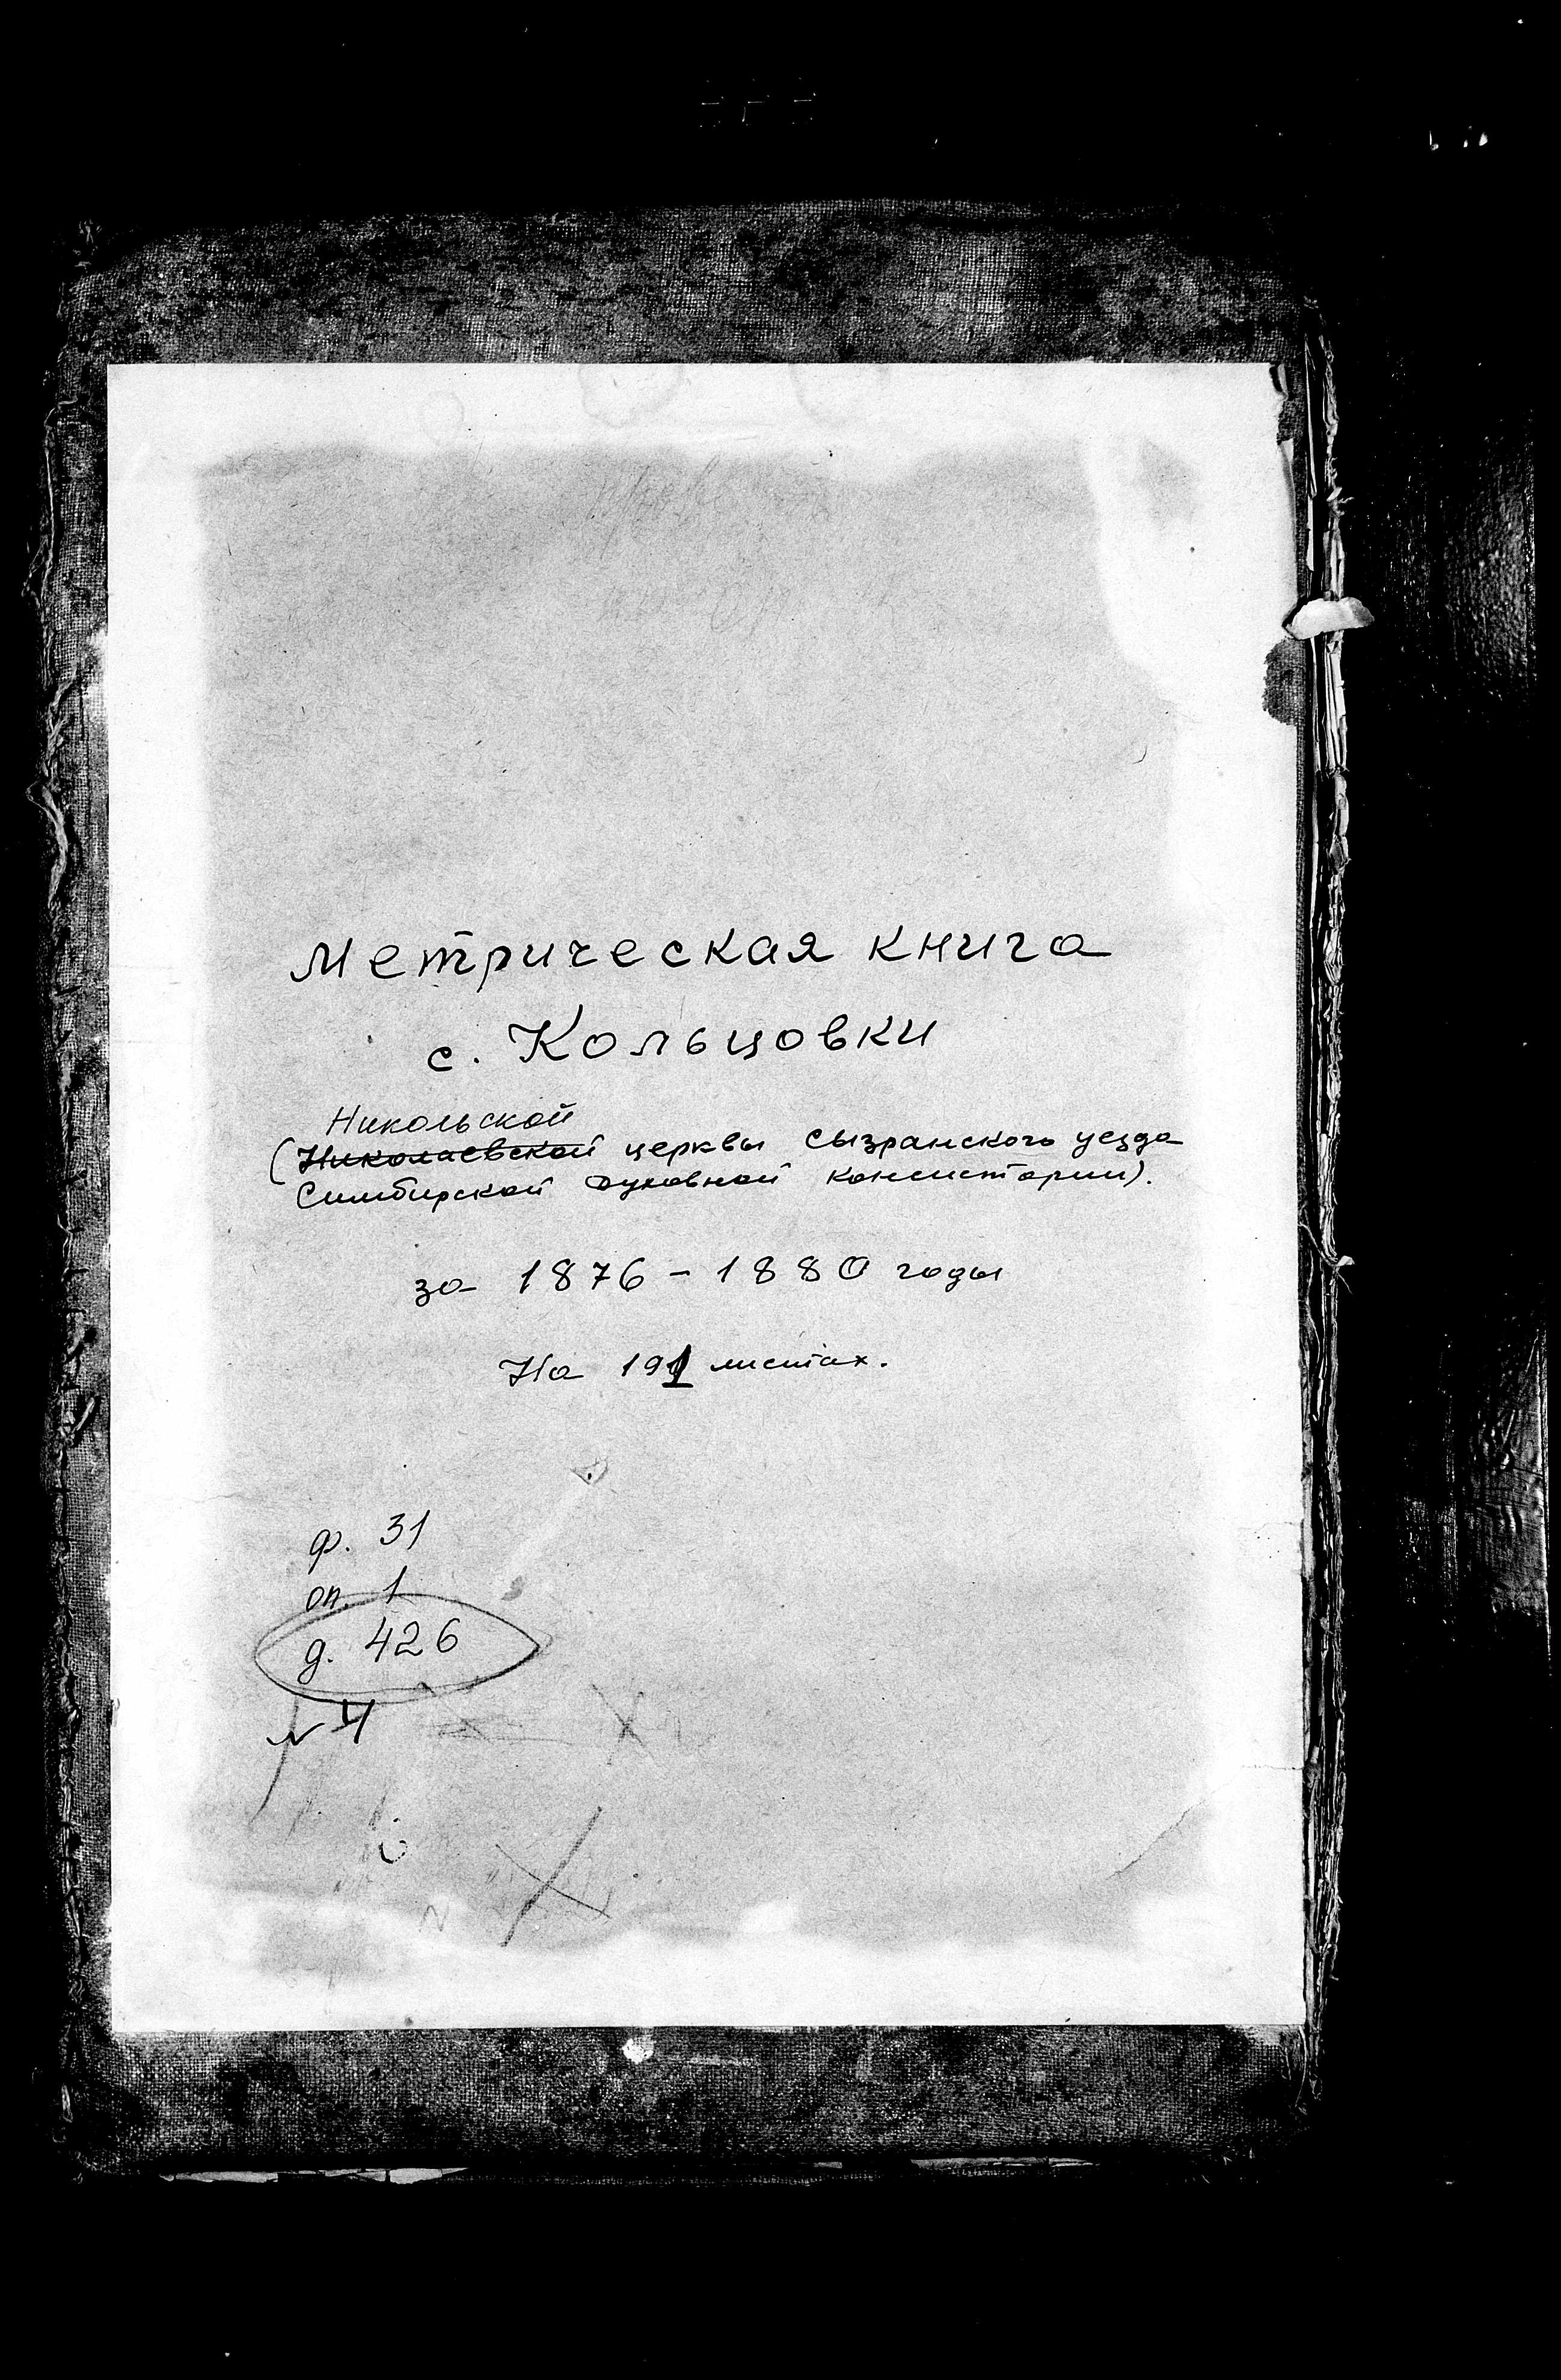 Метрическая книга
с. Кольцовки
Никольской
(Николаевской церквы Сызранского уезда
Симбирской духовной консистории).
за 1876-1880 годы
На 191 листах.
ф. 31
оп. 1
д. 426